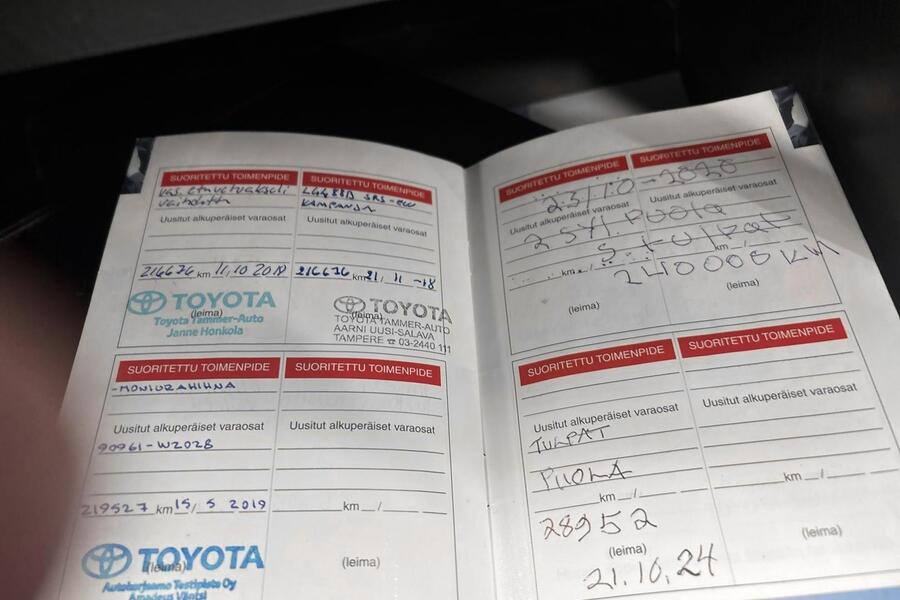 SUORITETTU TOIMENPIDE
vaihdettu
Uusitut alkuperäiset varaosat
216676 km 11, 10 2018
TOYOTA
(leima)
Toyota Tammer-Auto
Janne Honkola
SUORITETTU TOIMENPIDE
SRS-ECU
KAMPANJA
Uusitut alkuperäiset varaosat
216676 km 21, 11 -18
TOYOTA
(leima)
TOYOTA TAMMER-AUTO
AARNI UUSI-SALAVA
TAMPERE ☎ 03-2440 111
SUORITETTU TOIMENPIDE
-MONIURAHIHNA
Uusitut alkuperäiset varaosat
90961-W2028
219527 km 15, 5 2019
TOYOTA
(leima)
Autokorjaamo Testipiste Oy
SUORITETTU TOIMENPIDE
Uusitut alkuperäiset varaosat
km / 
(leima)
SUORITETTU TOIMENPIDE
SUORITETTU TOIMENPIDE
23/10-2020
Uusitut alkuperäiset varaosat
Uusitut alkuperäiset varaosat
Puola
tulpat
km /
km /
240 000 KM
(leima)
(leima)
SUORITETTU TOIMENPIDE
Uusitut alkuperäiset varaosat
TULPAT
PUOLA
km /
28952
(leima)
21.10.24
SUORITETTU TOIMENPIDE
Uusitut alkuperäiset varaosat
km /
(leima)